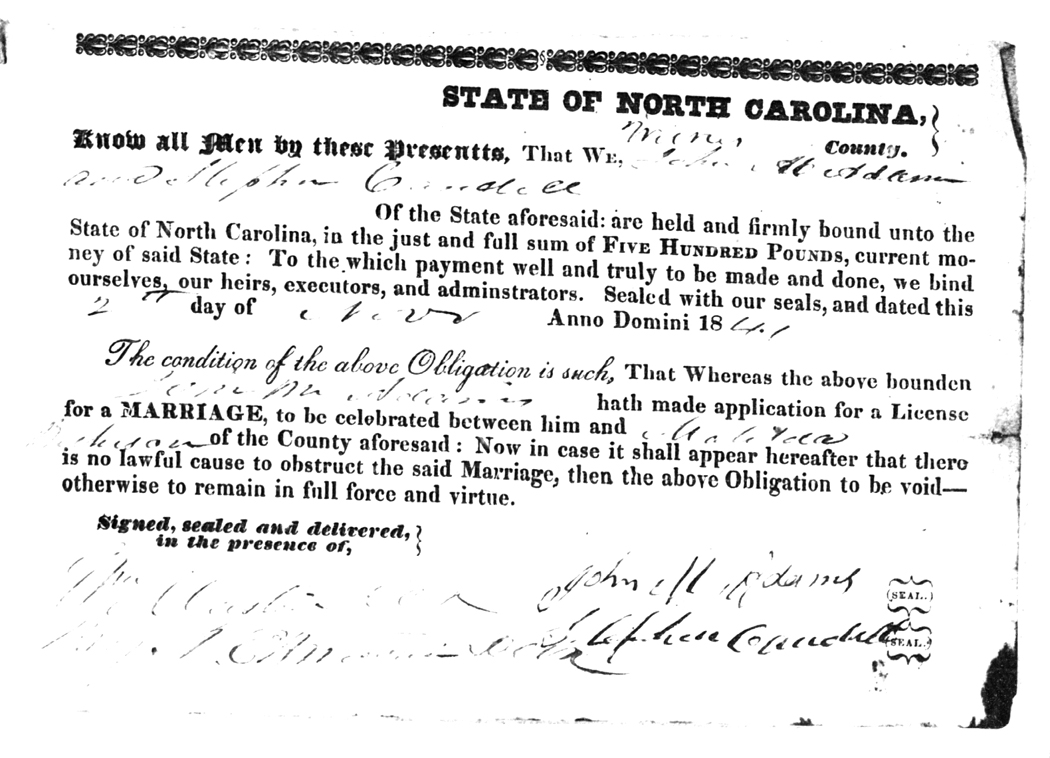 STATE OF NORTH CAROLINA,
County.
Know all Men by these Presentts, That WE, John M Adams
and Stephen
Of the State aforesaid: are held and firmly bound unto the
State of North Carolina, in the just and full sum of FIVE HUNDRED POUNDS, current mo-
ney of said State: To the which payment well and truly to be made and done, we bind
ourselves, our heirs, executors, and adminstrators. Sealed with our seals, and dated this
2 day of Nov Anno Domini 1841
The condition of the above Obligation is such, That Whereas the above bounden
Adams hath made application for a License
for a MARRIAGE, to be celebrated between him and
of the County aforesaid: Now in case it shall appear hereafter that there
is no lawful cause to obstruct the said Marriage, then the above Obligation to be void—
otherwise to remain in full force and virtue.
Signed, sealed and delivered,
in the presence of,
John M Adams (SEAL.)
Stephen (SEAL.)